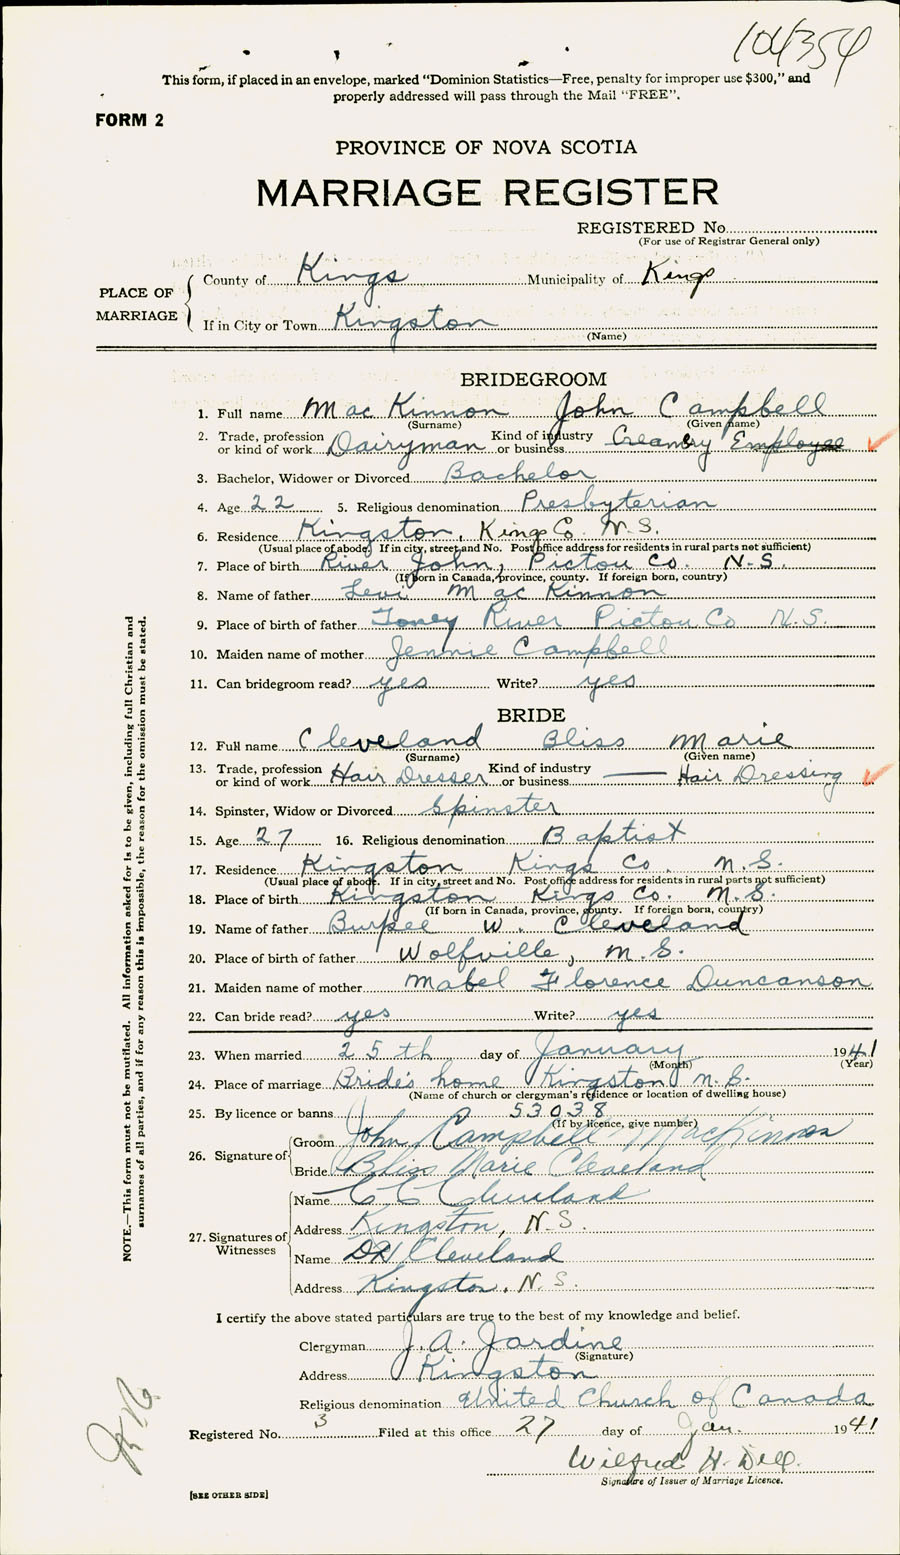 104354
This form, if placed in an envelope, marked "Dominion Statistics—Free, penalty for improper use $300," and
properly addressed will pass through the Mail "FREE".
FORM 2
PROVINCE OF NOVA SCOTIA
MARRIAGE REGISTER
REGISTERED No.
(For use of Registrar General only)
PLACE OF MARRIAGE
County of Kings Municipality of Kings
If in City or Town Kingston
(Name)
BRIDEGROOM
1. Full name MacKinnon John Campbell
(Surname) (Given name)
2. Trade, profession or kind of work Dairyman Kind of industry or business Creamery Employee
3. Bachelor, Widower or Divorced Bachelor
4. Age 22 5. Religious denomination Presbyterian
6. Residence Kingston, Kings Co. N.S.
(Usual place of abode. If in city, street and No. Post office address for residents in rural parts not sufficient)
7. Place of birth River John, Pictou Co. N.S.
(If born in Canada, province, county. If foreign born, country)
8. Name of father Levi MacKinnon
9. Place of birth of father Toney River Pictou Co N.S.
10. Maiden name of mother Jennie Campbell
11. Can bridegroom read? yes Write? yes
BRIDE
12. Full name Cleveland Bliss Marie
(Surname) (Given name)
13. Trade, profession or kind of work Hair Dresser Kind of industry or business — Hair Dressing
14. Spinster, Widow or Divorced Spinster
15. Age 27 16. Religious denomination Baptist
17. Residence Kingston Kings Co. N.S.
(Usual place of abode. If in city, street and No. Post office address for residents in rural parts not sufficient)
18. Place of birth Kingston Kings Co. N.S.
(If born in Canada, province, county. If foreign born, country)
19. Name of father Burpee W. Cleveland
20. Place of birth of father Wolfville, N.S.
21. Maiden name of mother Mabel Florence Duncanson
22. Can bride read? yes Write? yes
23. When married 25th day of January 1941
(Month) (Year)
24. Place of marriage Bride's home Kingston N.S.
(Name of church or clergyman's residence or location of dwelling house)
25. By licence or banns 53038
(If by licence, give number)
26. Signature of
Groom John Campbell MacKinnon
Bride Bliss Marie Cleveland
27. Signatures of Witnesses
Name C C Cleveland
Address Kingston, N.S.
Name Cleveland
Address Kingston, N.S.
I certify the above stated particulars are true to the best of my knowledge and belief.
Clergyman J. A. Jardine
(Signature)
Address Kingston
Religious denomination United Church of Canada
Registered No. 3 Filed at this office 27 day of Jan. 1941
Wilfred H. Dill.
Signature of Issuer of Marriage Licence.
[SEE OTHER SIDE]
NOTE.—This form must not be mutilated. All information asked for is to be given, including full Christian and
surnames of all parties, and if for any reason this is impossible, the reason for the omission must be stated.